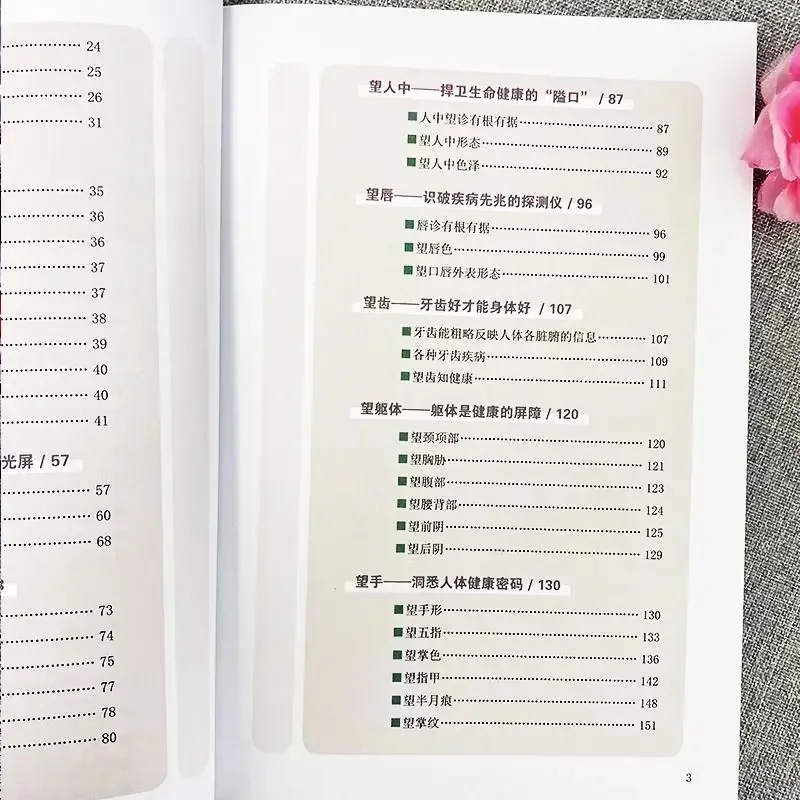 24
25
26
31
35
36
36
37
37
38
39
40
40
41
光屏 / 57
57
60
68
73
74
75
77
78
80
望人中——捍卫生命健康的“隘口” / 87
■人中望诊有根有据 87
■望人中形态 89
■望人中色泽 92
望唇——识破疾病先兆的探测仪 / 96
■唇诊有根有据 96
■望唇色 99
■望口唇外表形态 101
望齿——牙齿好才能身体好 / 107
■牙齿能粗略反映人体各脏腑的信息 107
■各种牙齿疾病 109
■望齿知健康 111
望躯体——躯体是健康的屏障 / 120
■望颈项部 120
■望胸胁 121
■望腹部 123
■望腰背部 124
■望前阴 125
■望后阴 129
望手——洞悉人体健康密码 / 130
■望手形 130
■望五指 133
■望掌色 136
■望指甲 142
■望半月痕 148
■望掌纹 151
3